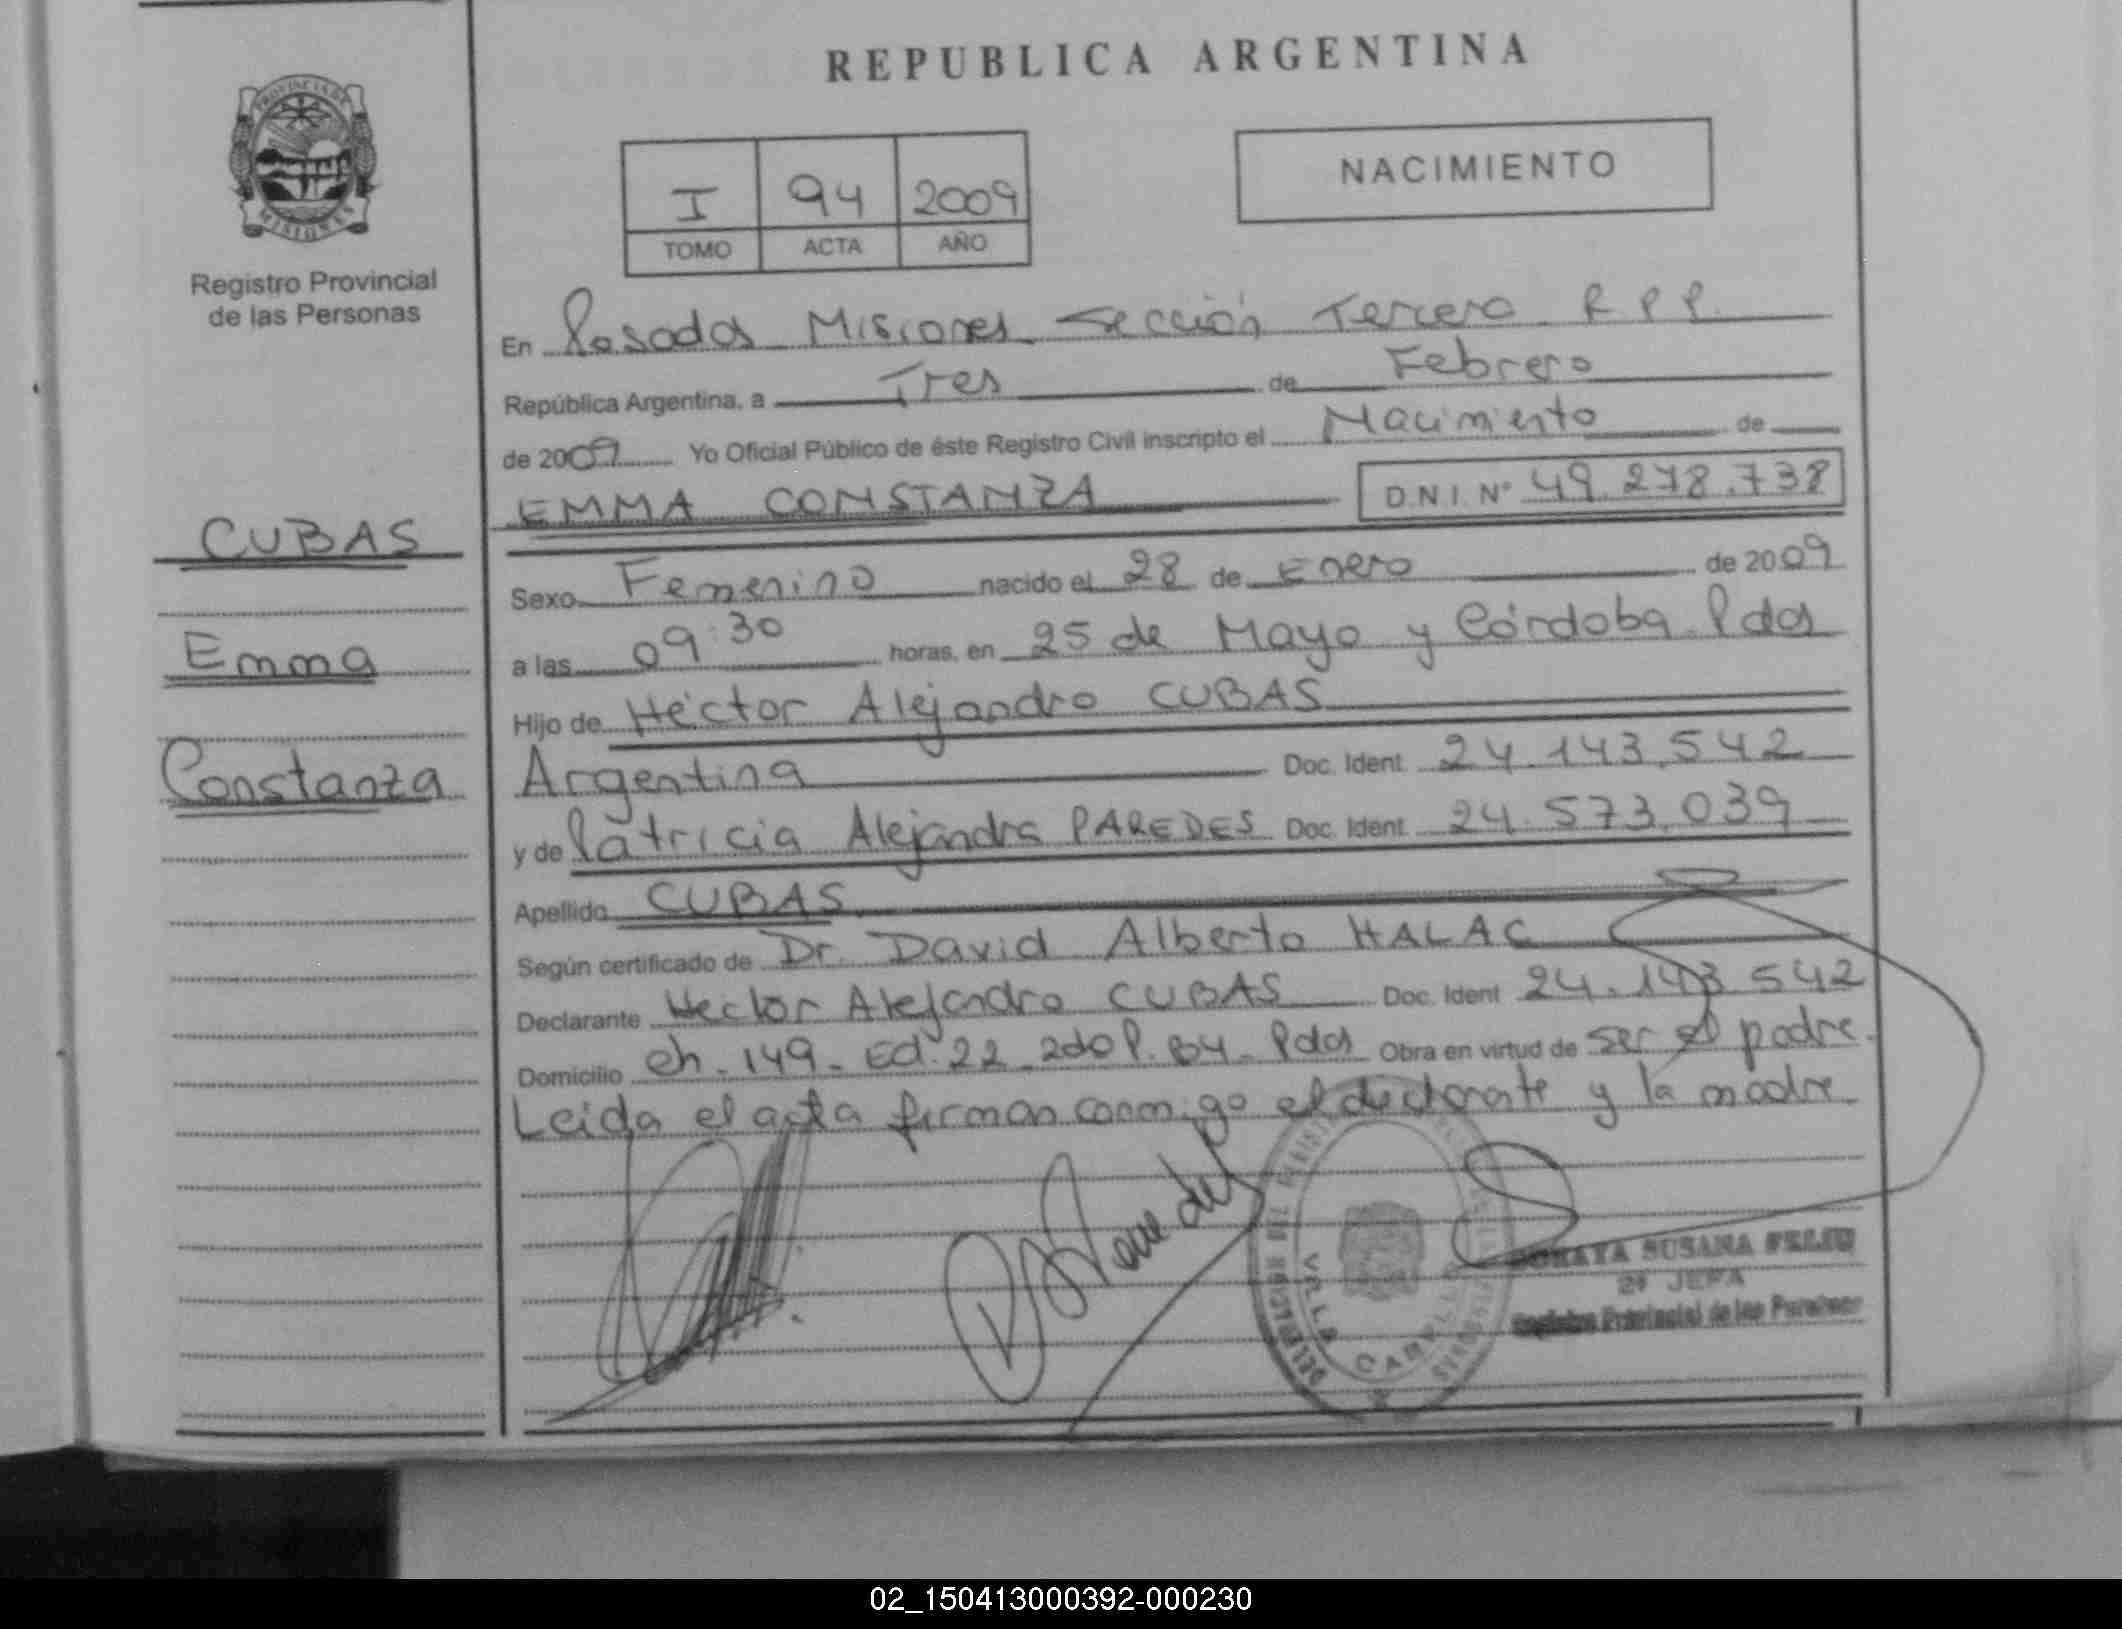 REPUBLICA ARGENTINA
PROVINCIA DE
MISIONES
Registro Provincial
de las Personas
I 94 2009
TOMO ACTA AÑO
NACIMIENTO
En Posadas Misiones Sección Tercera R.P.P.
República Argentina, a Tres de Febrero
de 2009 Yo Oficial Público de éste Registro Civil inscripto el Nacimiento de
EMMA CONSTANZA D.N.I. Nº 49.278.738
CUBAS
Emma
Constanza
Sexo Femenino nacido el 28 de Enero de 2009
a las 09:30 horas, en 25 de Mayo y Córdoba. Pdas
Hijo de Héctor Alejandro CUBAS
Argentina Doc. Ident. 24.143.542
y de Patricia Alejandra PAREDES Doc. Ident. 24.573.039
Apellido CUBAS
Según certificado de Dr. David Alberto HALAC
Declarante Hector Alejandro CUBAS Doc. Ident. 24.143.542
Domicilio Ch. 149. Ed. 22. 2do P. B4. Pdas Obra en virtud de ser el padre.
Leida el acta firman conmigo el declarante y la madre.
SORAYA SUSANA FELIU
2ª JEFA
Registro Provincial de las Personas
02_150413000392-000230